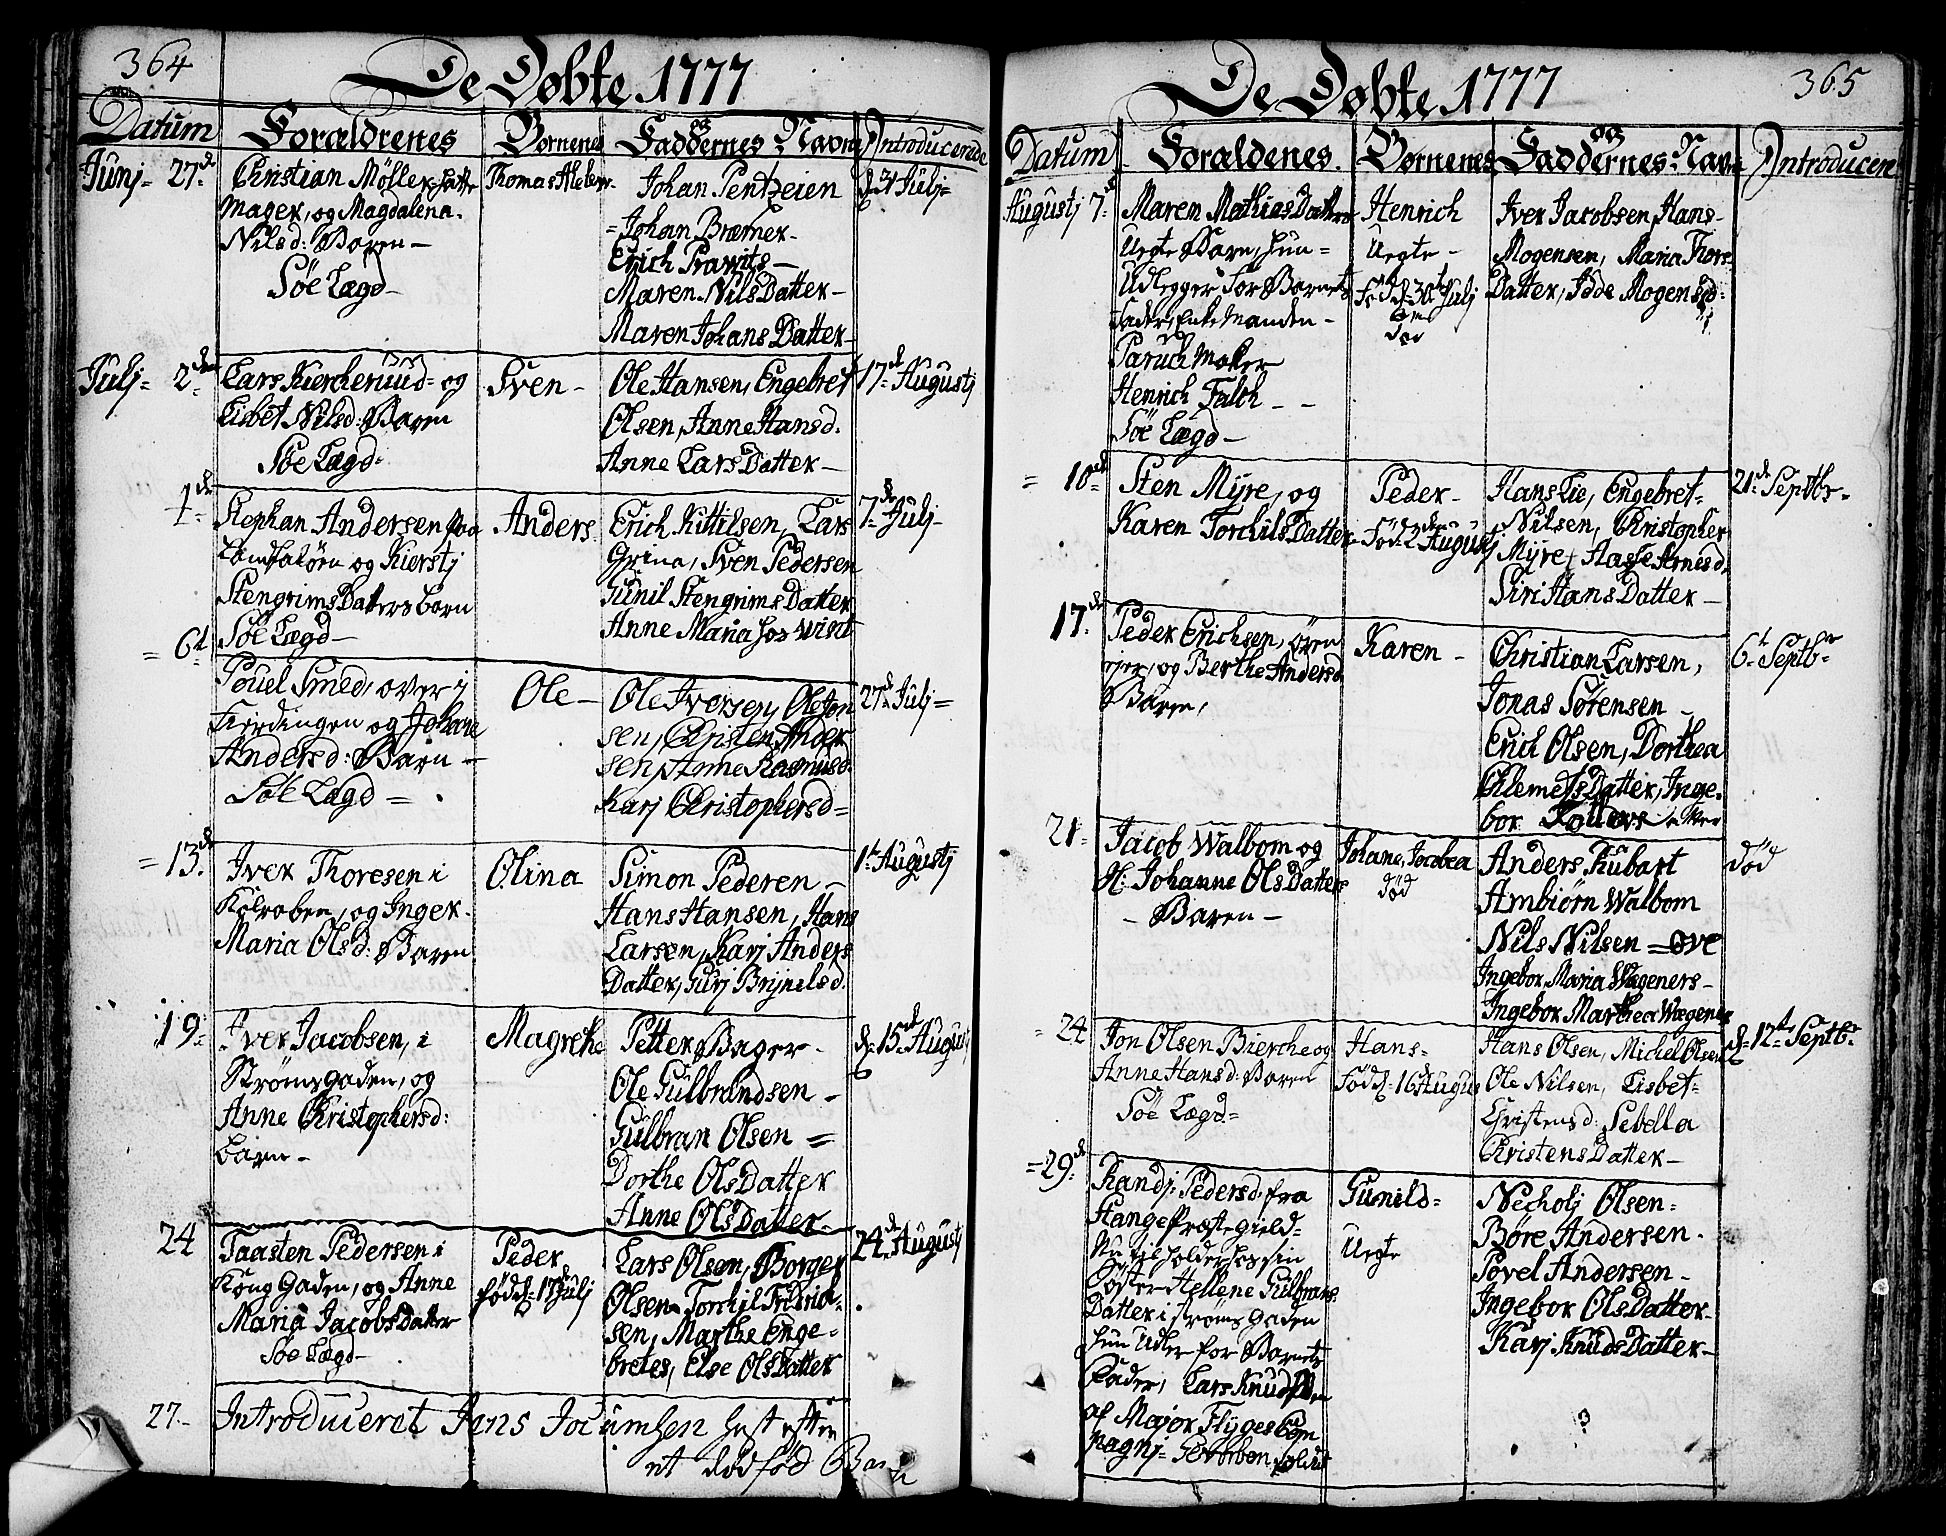 364
De Döbte 1777
Datum Forældrenes Börnenes og Faddernes Navne Introducerede
Junj- 27de Christian Möller hatte
mager, og Magdalena
Nilsd: Baren-
Söe Lægd-
Johan Pentzeien
Johan Bræmer-
Erich Prawits-
Maren Nils Datter-
Maren Johans Datter-
d: 31 Julj
Julj- 2den Lars Kiercheruud og
Lisbet Nilsd: Baren
Söe Lægd
Sven-
Ole Hansen, Engebret
Olsen, Anne Hansd.
Anne Lars Datter-
17de Augustj
4de Stephan Andersen paa
og Kierstj
Stengrims Datters barn
Söe Lægd-
Anders
Erich Kittilsen, Lars
Grina, Sven Pedersen
Gunil Stengrims Datter
Anne Maria hos Wint
7de Julj-
= 6d Pouel Smed, over i
Fierdingen og Johane
Andersd: Barn-
Söe Lægd =
Ole-
Ole Iversen, Ole Jon
sen, Christen Ander
sen, Anne Rasmusd.
Karj Christophersd=
27de Julj=
= 13de Iver Thoresen i
og Inger
Maria Olsd: Baren
Olina
Simon Pederen-
Hans Hansen, Hans
Larsen, Karj Anders
Datter, Gurj Brynelsd.
1t Augustj
19 Iver Jacobsen, i
Ströms Gaden, og
Anne Christophersd:
barn-
Magrethe
Petter Bager-
Ole Gulbrandsen-
Gulbran Olsen =
Dorthe Ols Datter
Anne Ols Datter-
d: 15de August
24 Taasten Pedersen i
Kong Gaden, og Anne
Maria Jacobs Datter
Söe Lægd-
Peder
född: 17de Julj
Lars Olsen, Borger
Olsen Torchil Fridrich
sen, Marthe Enge=
bretes, Else Ols Datter
24de Augustj
27- Introduceret Jens Jocumsen hust efter
et dödföd Barn
365
De Döbte 1777
Datum Forældenes Börnenes og Faddernes Navne Introducere
Augustj 7de Maren Mathias Datters
Uegte Barn, hun=
Udlegger for Barnets
fader, Enke Manden-
Paruch Maker
Henrich Falch - -
Söe Lægd-
Henrich
Uegte-
Föd d: 30t Julj
död
Iver Jacobsen, Hans-
Mogensen, Maria Thors
Datter, Idde Mogensd:
= 10de Sten Myre, og
Karen Torchils Datter
Peder-
Föd: 2de Augustj
Hans Lie, Engebret=
Nilsen, Christopher
Myre, Arnesd,
Siri Hans Datter-
21de Septbr-
17de Peder Erichsen, Ören
ejer, og Berthe Andersd
Baren,
Karen-
Christian Larsen,
Jonas Sörensen-
Erich Olsen, Dorthea
Clemets Datter, Inge=
bor
6t Septbr
21- Jacob Walbom og
H: Johanne Ols Datters
- Baren-
Johane, Jacobea
död
Anders Kubart
Ambiörn Walbom
Nils Nilsen = Ove
Ingebor Maria Wægeners-
Ingebor Marthea Wægener
död
= 24 Jon Olsen Bierche og
Anne Hansd: Baren
Söe Lægd=
Hans-
Född: 16 Augus
Hans Olsen, Michel Olsen
Ole Nilsen, Lisbet=
Christensd: Sebella
Christens Datter-
d: 12te Septbr
= 29de Randj: Pedersd fra
Hange Præstegield=
Nu til holder hos sin
Söster Hellene Gulbrans
Datter i Ströms Gaden
hun Udler for Barnets
Fader, Lars Knudsen
af Major Flyges Com
pagnj= soldat
Gunild=
Uegte
Necholj Olsen=
Böre Andersen.
Povel Andersen-
Ingebor Ols Datter-
Karj Knuds Datter-